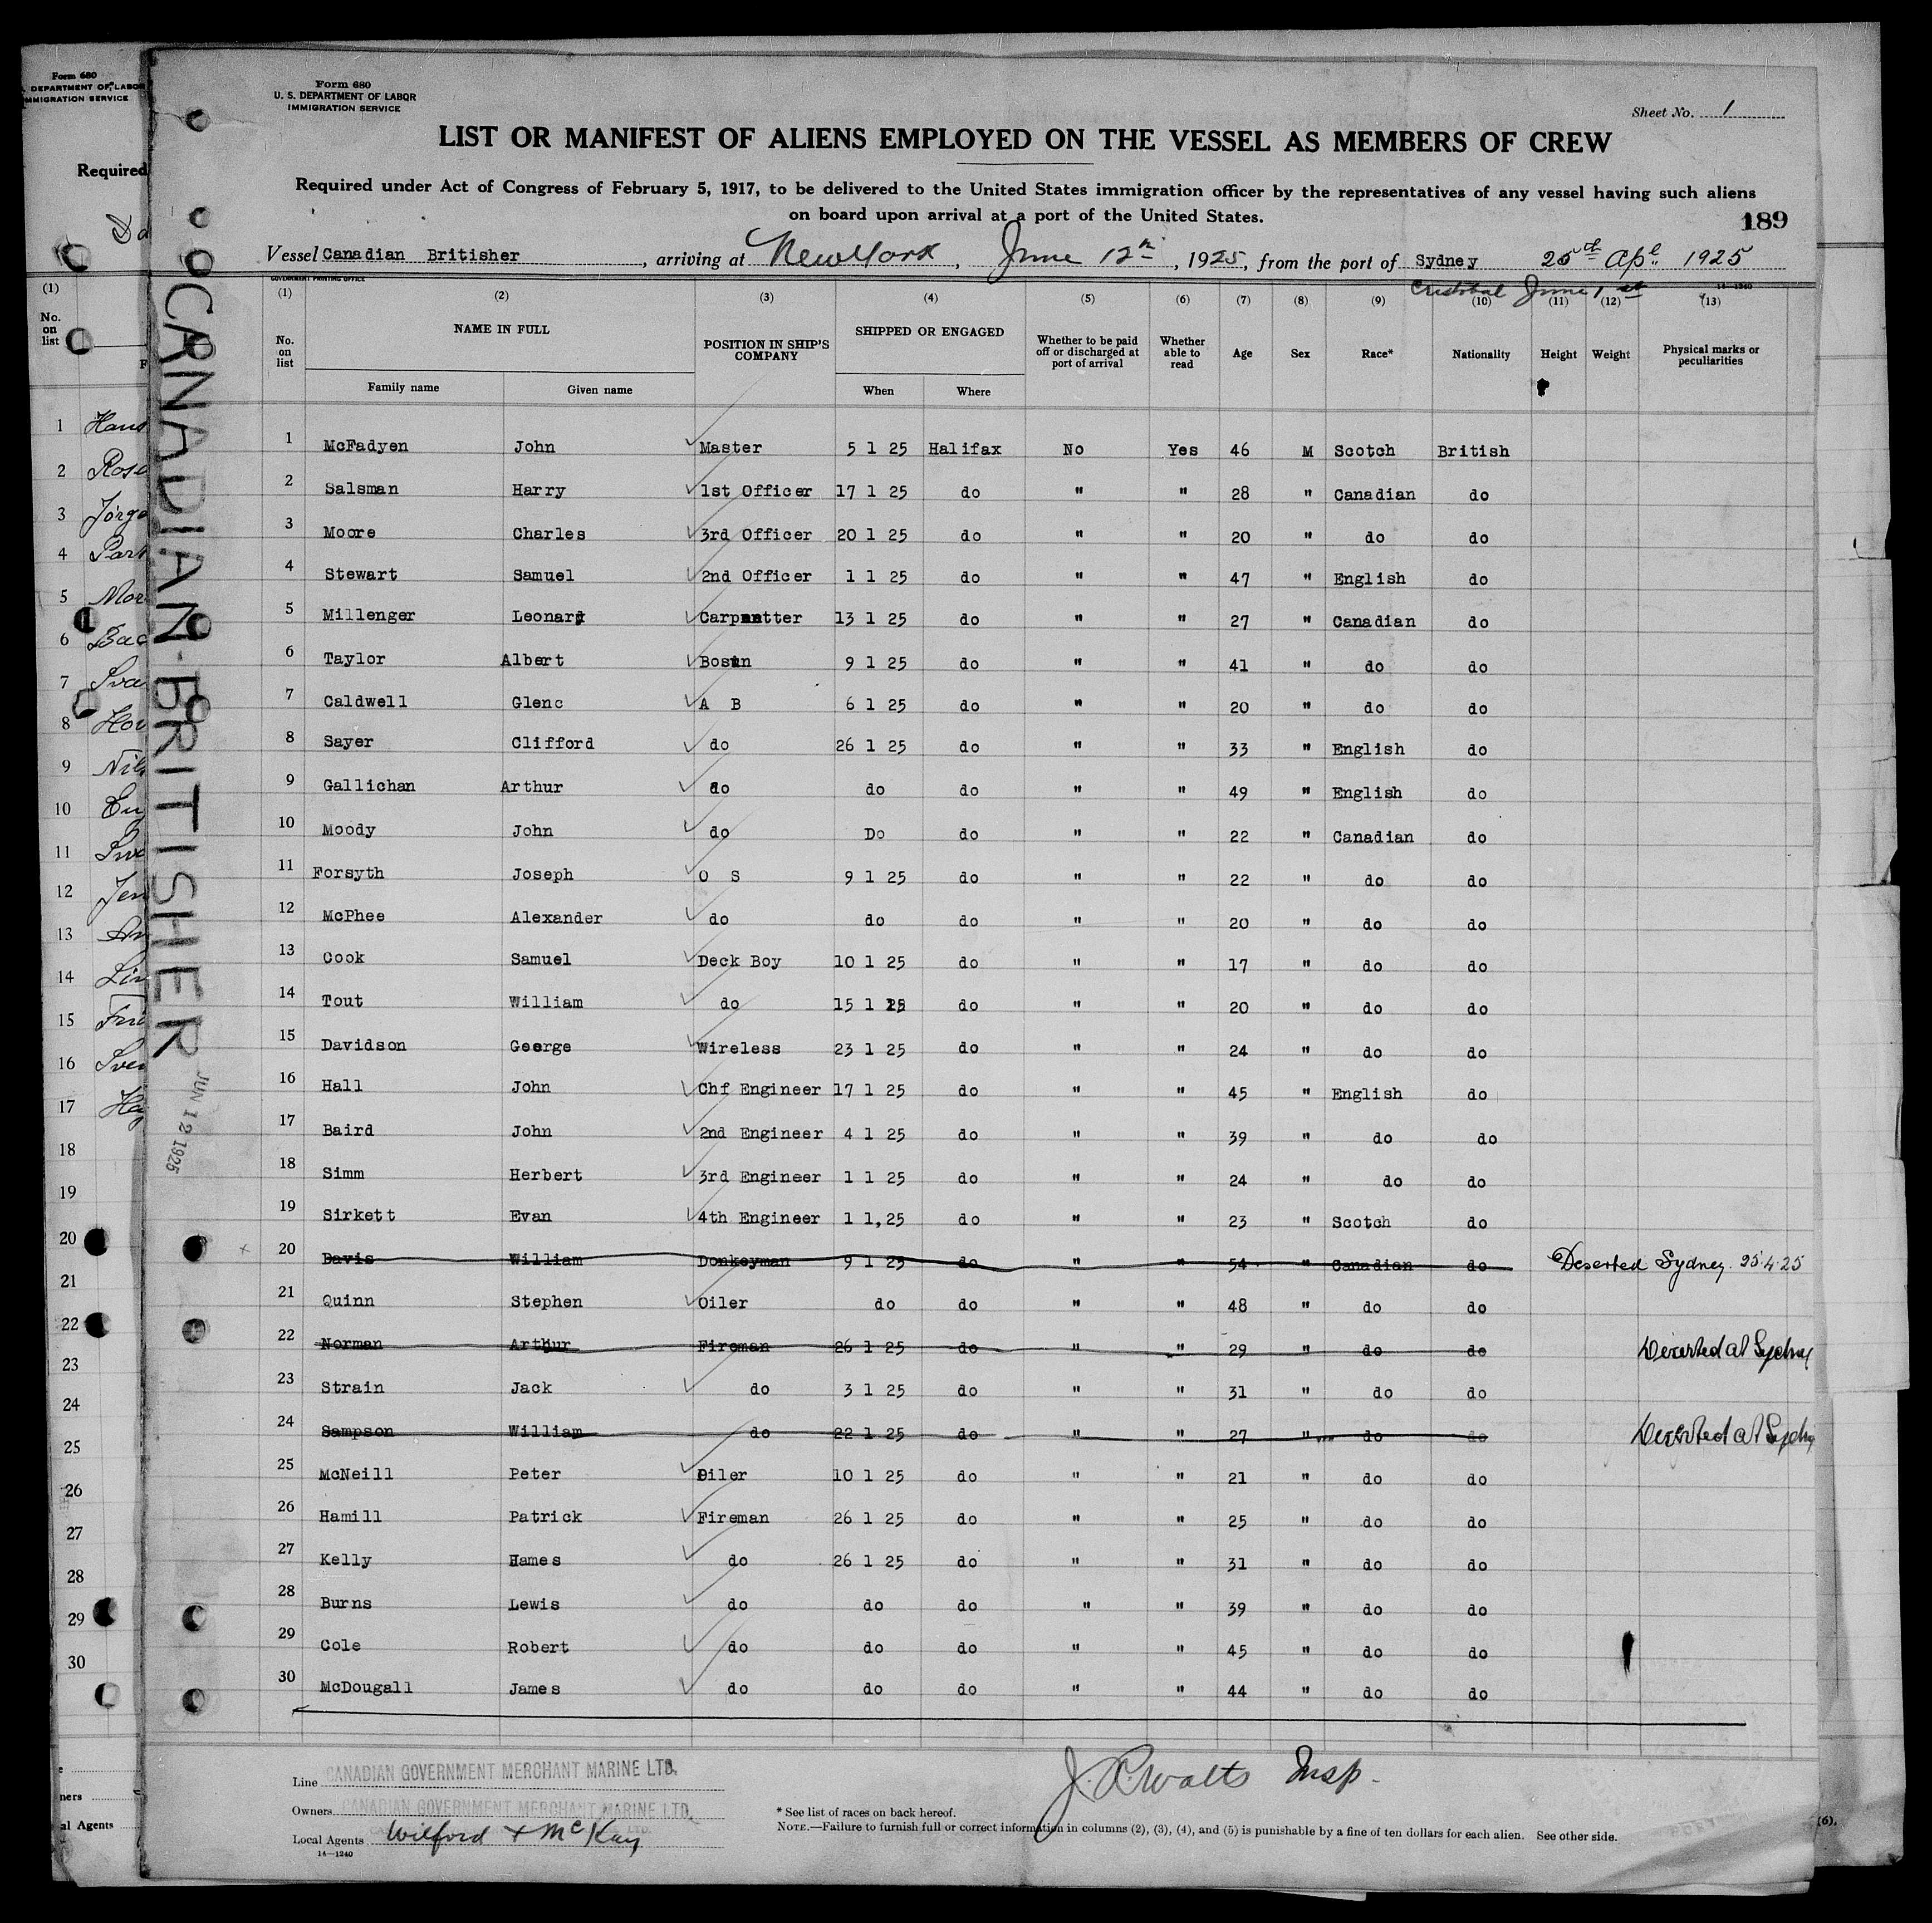 Form 680
U. S. DEPARTMENT OF LABOR
IMMIGRATION SERVICE
Sheet No. 1
LIST OR MANIFEST OF ALIENS EMPLOYED ON THE VESSEL AS MEMBERS OF CREW
Required under Act of Congress of February 5, 1917, to be delivered to the United States immigration officer by the representatives of any vessel having such aliens
on board upon arrival at a port of the United States.
189
Vessel Canadian Britisher, arriving at New York, June 12th, 1925, from the port of Sydney 25th Apl. 1925
Cristobal June 1st
GOVERNMENT PRINTING OFFICE 14—1240
(1) (2) (3) (4) (5) (6) (7) (8) (9) (10) (11) (12) (13)
No. on list NAME IN FULL Family name Given name POSITION IN SHIP'S COMPANY SHIPPED OR ENGAGED When Where Whether to be paid off or discharged at port of arrival Whether able to read Age Sex Race* Nationality Height Weight Physical marks or peculiarities
1 McFadyen John Master 5 1 25 Halifax No Yes 46 M Scotch British
2 Salsman Harry 1st Officer 17 1 25 do " " 28 " Canadian do
3 Moore Charles 3rd Officer 20 1 25 do " " 20 " do do
4 Stewart Samuel 2nd Officer 1 1 25 do " " 47 " English do
5 Millenger Leonard Carpentter 13 1 25 do " " 27 " Canadian do
6 Taylor Albert Bosun 9 1 25 do " " 41 " do do
7 Caldwell Glenc A B 6 1 25 do " " 20 " do do
8 Sayer Clifford do 26 1 25 do " " 33 " English do
9 Gallichan Arthur do do do " " 49 " English do
10 Moody John do Do do " " 22 " Canadian do
11 Forsyth Joseph O S 9 1 25 do " " 22 " do do
12 McPhee Alexander do do do " " 20 " do do
13 Cook Samuel Deck Boy 10 1 25 do " " 17 " do do
14 Tout William do 15 1 25 do " " 20 " do do
15 Davidson George Wireless 23 1 25 do " " 24 " do do
16 Hall John Chf Engineer 17 1 25 do " " 45 " English do
17 Baird John 2nd Engineer 4 1 25 do " " 39 " do do
18 Simm Herbert 3rd Engineer 1 1 25 do " " 24 " do do
19 Sirkett Evan 4th Engineer 1 1,25 do " " 23 " Scotch do
20 Davis William Donkeyman 9 1 25 do " " 54 " Canadian do Deserted Sydney. 25.4.25
21 Quinn Stephen Oiler do do " " 48 " do do
22 Norman Arthur Fireman 26 1 25 do " " 29 " do do Deserted at Sydney
23 Strain Jack do 3 1 25 do " " 31 " do do
24 Sampson William do 22 1 25 do " " 27 " do do Deserted at Sydney
25 McNeill Peter Oiler 10 1 25 do " " 21 " do do
26 Hamill Patrick Fireman 26 1 25 do " " 25 " do do
27 Kelly Hames do 26 1 25 do " " 31 " do do
28 Burns Lewis do do do " " 39 " do do
29 Cole Robert do do do " " 45 " do do
30 McDougall James do do do " " 44 " do do
Line CANADIAN GOVERNMENT MERCHANT MARINE LTD.
Owners CANADIAN GOVERNMENT MERCHANT MARINE LTD.
Local Agents Wilford & McKay
14—1240
Insp.
* See list of races on back hereof.
NOTE.—Failure to furnish full or correct information in columns (2), (3), (4), and (5) is punishable by a fine of ten dollars for each alien. See other side.
CANADIAN-BRITISHER
JUN 12 1925
Form 680
DEPARTMENT OF LABOR
IMMIGRATION SERVICE
Required
(1)
No. on list
1
2
3
4
5
6
7
8
9
10
11
12
13
14
15
16
17
18
19
20
21
22
23
24
25
26
27
28
29
30
al Agents
(6).